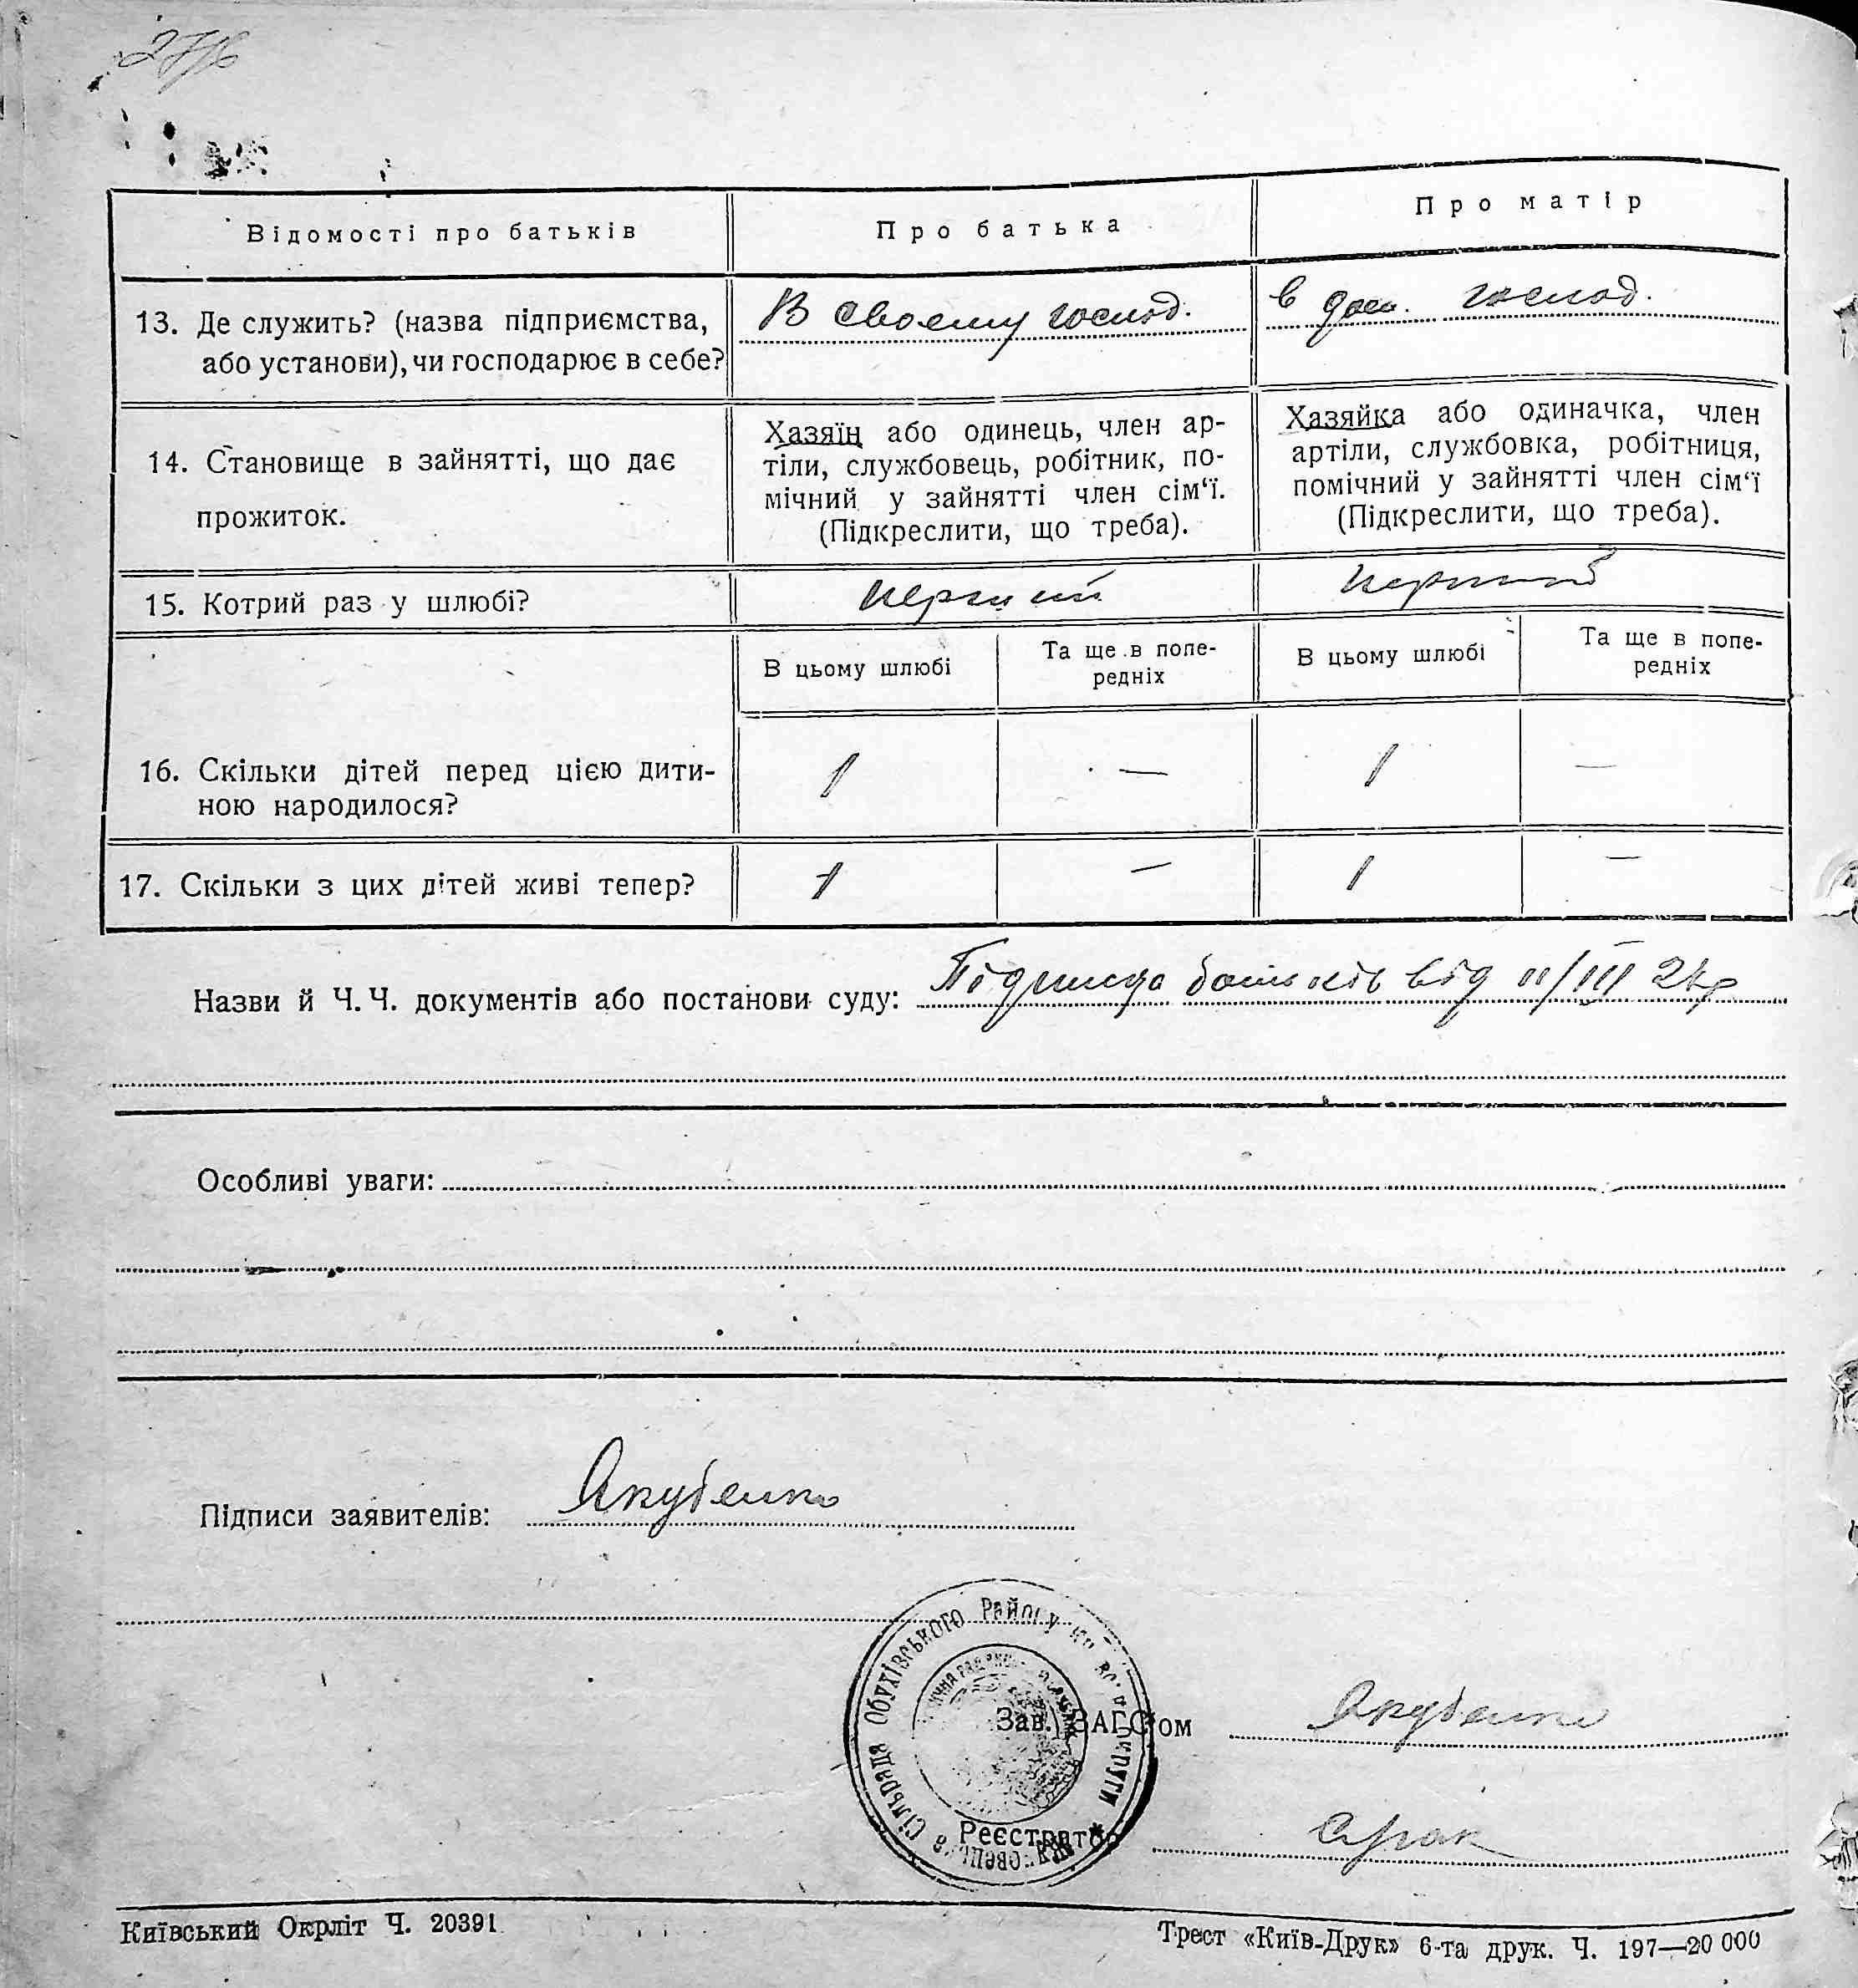 Відомості про батьків
Про батька
Про матір
13. Де служить? (назва підприємства,
або установи), чи господарює в себе?
В своему господ.
в дом. господ.
14. Становище в зайнятті, що дає
прожиток.
Хазяїн або одинець, член ар-
тіли, службовець, робітник, по-
мічний у зайнятті член сім‘ї.
(Підкреслити, що треба).
Хазяйка або одиначка, член
артіли, службовка, робітниця,
помічний у зайнятті член сім‘ї
(Підкреслити, що треба).
15. Котрий раз у шлюбі?
перший
перший
В цьому шлюбі
Та ще в попе-
редніх
В цьому шлюбі
Та ще в попе-
редніх
16. Скільки дітей перед цією дити-
ною народилося?
1 — 1 —
17. Скільки з цих дітей живі тепер?
1 — 1 —
Назви й Ч.Ч. документів або постанови суду: Підписка батьків від 11/III
Особливі уваги:
Підписи заявителів: Якубенко
Сільрада Обухівського Району
округи
Зав. ЗАГС‘ом Якубенко
Реєстратор
Київський Окрліт Ч. 20391
Трест «Київ-Друк» 6-та друк. Ч. 197—20 000